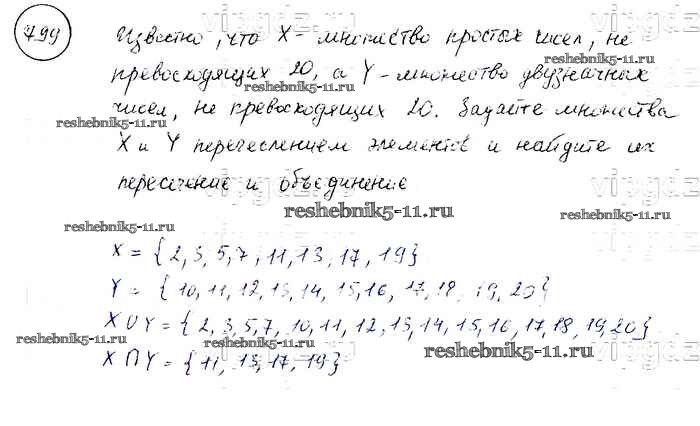 799
Известно, что X - множество простых чисел, не
превосходящих 20, а Y - множество двузначных
reshebnik5-11.ru
чисел, не превосходящих 20. Задайте множества
reshebnik5-11.ru
X и Y перечеслением элементов и найдите их
reshebnik5-11.ru
пересечение и объединение
reshebnik5-11.ru
reshebnik5-11.ru
reshebnik5-11.ru
X = {2,3,5,7,11,13,17,19}
reshebnik5-11.ru
Y = {10,11,12,13,14,15,16,17,18,19,20}
X U Y = {2,3,5,7,10,11,12,13,14,15,16,17,18,19,20}
reshebnik5-11.ru
reshebnik5-11.ru
X ∩ Y = {11,13,17,19}
vipgdz
vipgdz
vipgdz
vipgdz